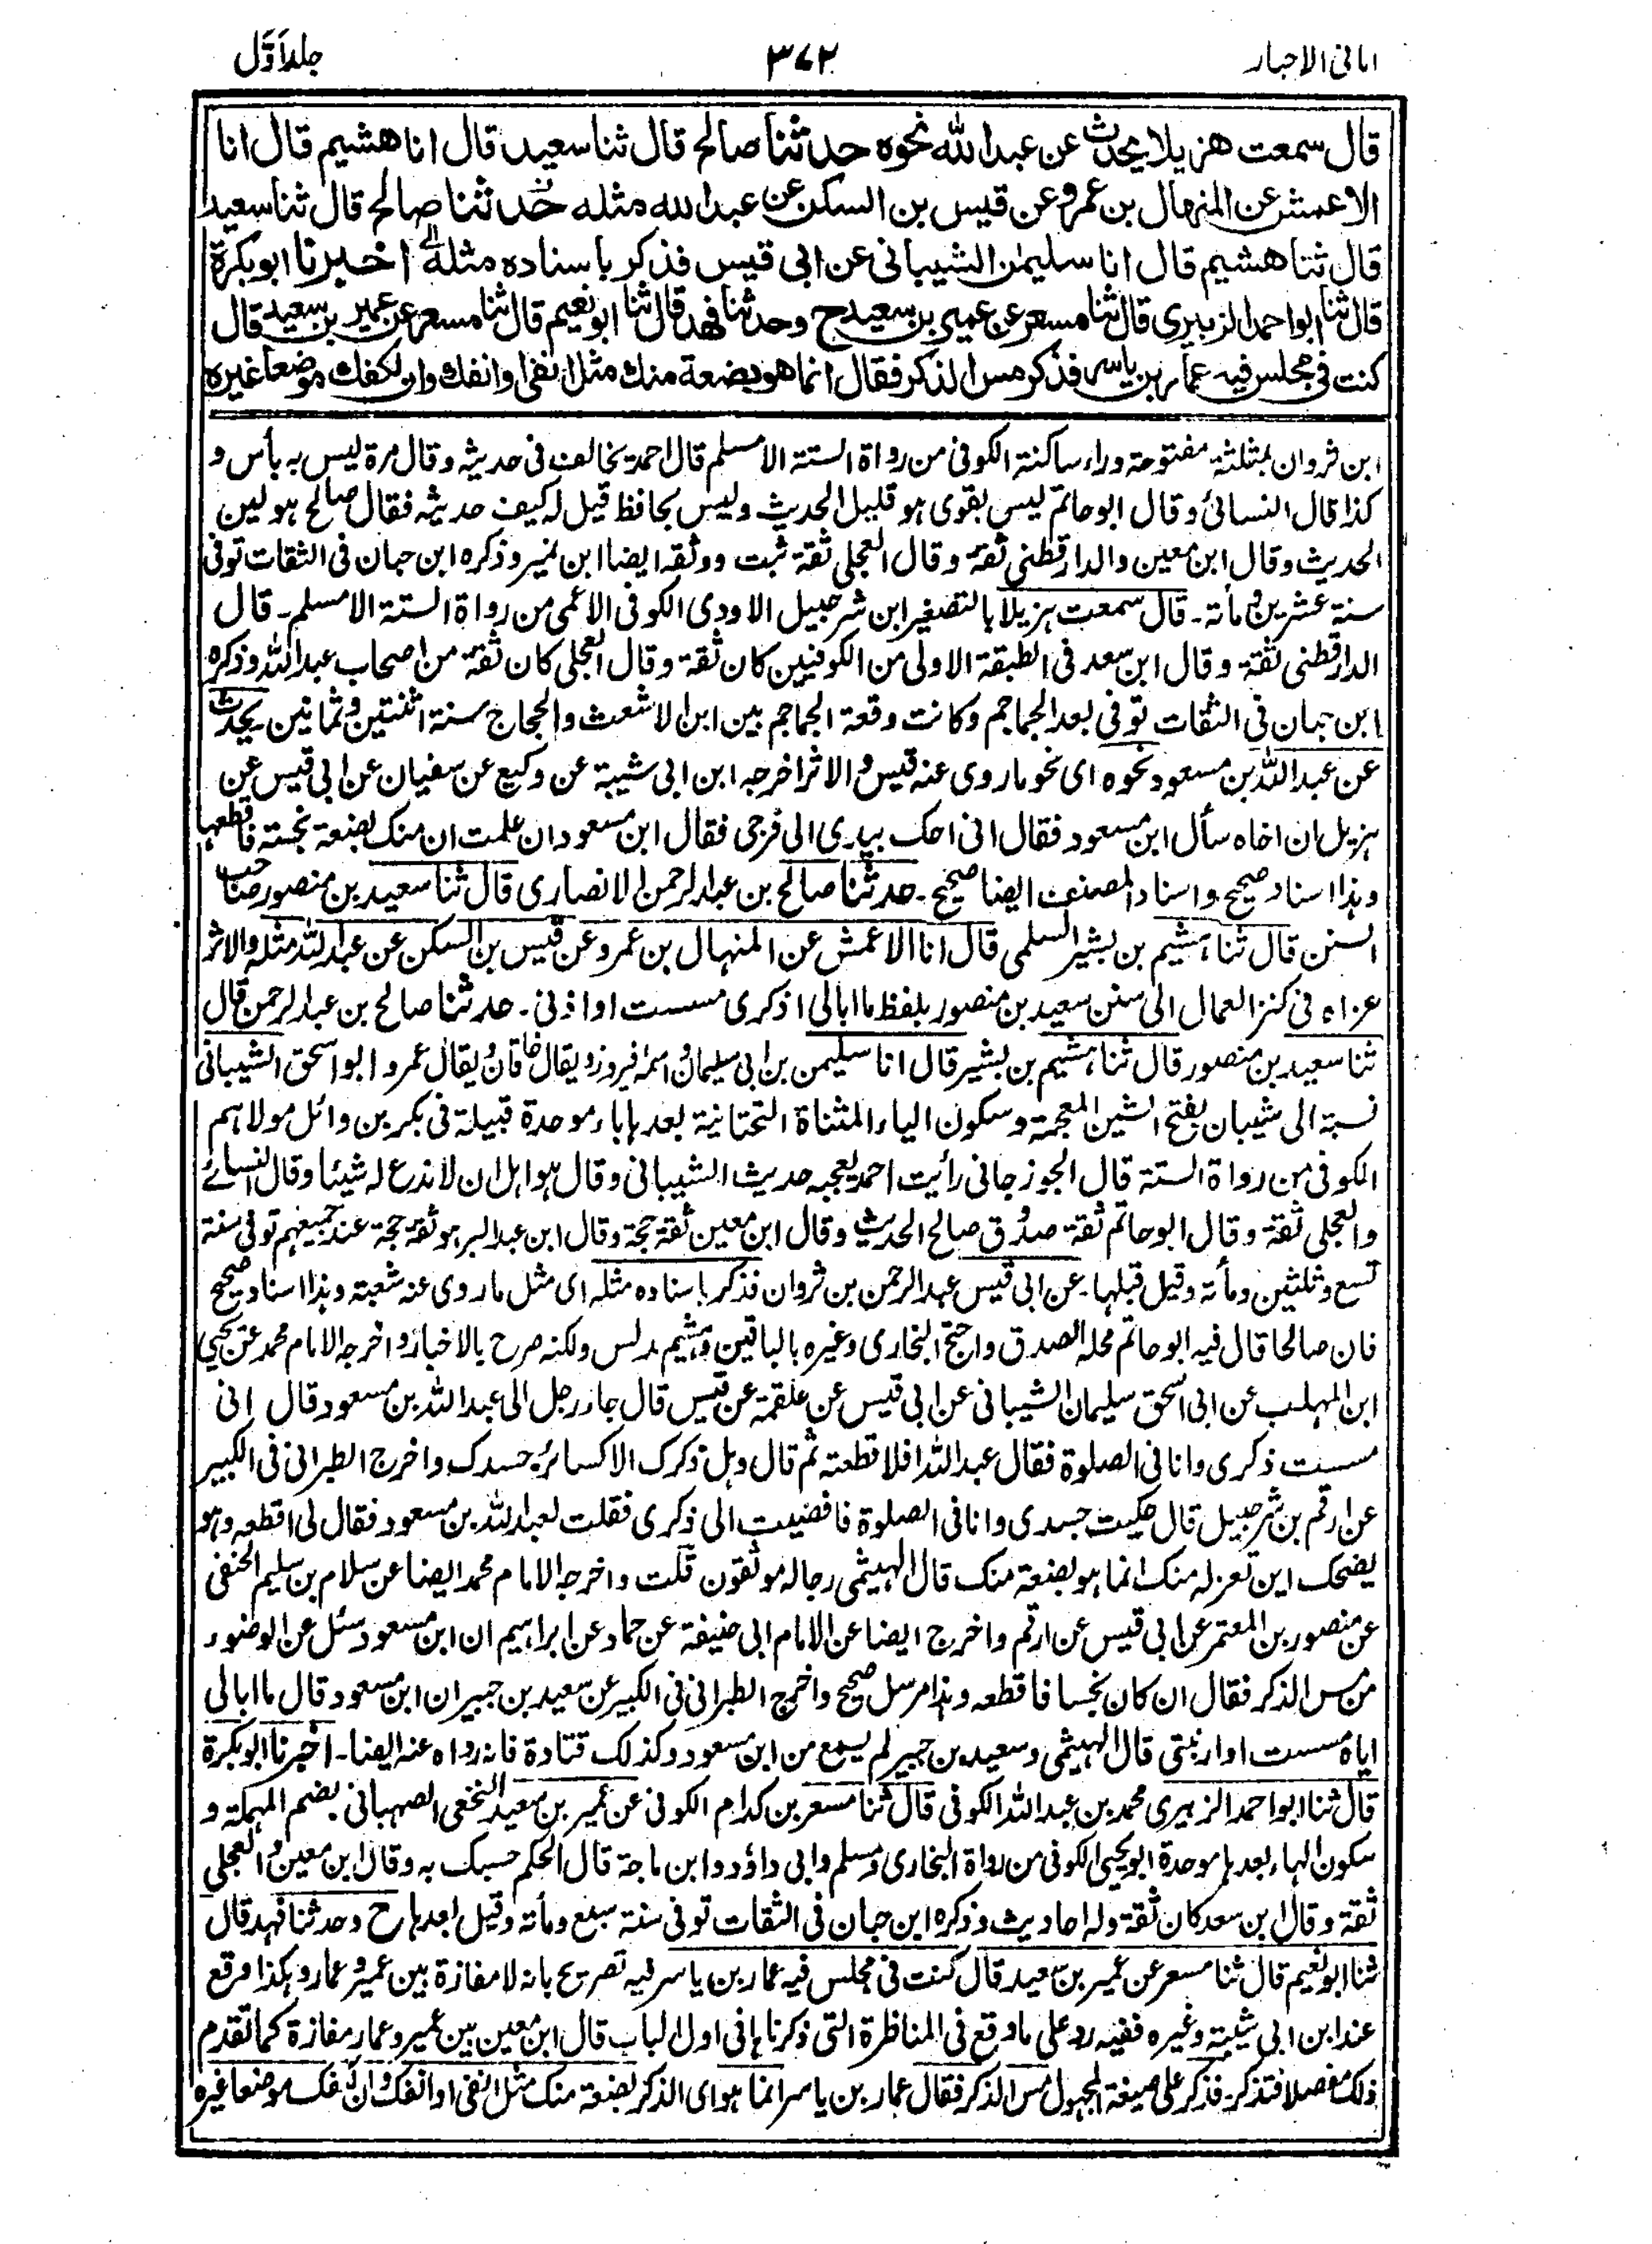 امانی الاحبار
۳۷۲
جلد اَوَّل
قال سمعت هزيلا يحدث عن عبد الله نحوه حدثنا صالح قال ثنا سعيد قال انا هشيم قال انا
الاعمش عن المنهال بن عمرو عن قيس بن السكن عن عبد الله مثله حدثنا صالح قال ثنا سعيد
قال ثنا هشيم قال انا سليمٰن الشيبانی عن ابی قيس فذكر باسناده مثله اخبرنا ابو بكرة
قال ثنا ابو احمد الزبيری قال ثنا مسعر عن عمير بن سعيد ح وحدثنا فهد قال ثنا ابو نعيم قال ثنا مسعر عن عمير بن سعيد قال
كنت فی مجلس فيه عمار بن ياسر فذكر مس الذكر فقال انما هو بضعة منك مثل انفی او انفك وان لكفك موضعا غيره
ابن ثروان بمثلثة مفتوحة وراء ساكنة الكوفی من رواة الستة الا مسلم قال احمد يخالف فی حديثه وقال مرة ليس به بأس و
كذا قال النسائی وقال ابو حاتم ليس بقوی هو قليل الحديث وليس بحافظ قيل له كيف حديثه فقال صالح هو لين
الحديث وقال ابن معين والدارقطنی ثقة وقال العجلی ثقة ثبت ووثقه ايضا ابن نمير وذكره ابن حبان فی الثقات توفی
سنة عشرين ومأة ـ قال سمعت هزيلا بالتصغير ابن شرحبيل الاودی الكوفی الاعمی من رواة الستة الا مسلم ـ قال
الدارقطنی ثقة وقال ابن سعد فی الطبقة الاولی من الكوفيين كان ثقة وقال العجلی كان ثقة من اصحاب عبد الله وذكره
ابن حبان فی الثقات توفی بعد الجماجم وكانت وقعة الجماجم بين ابن الاشعث والحجاج سنة اثنتين وثمانين يحدث
عن عبد الله بن مسعود نحوه ای نحو ما روی عنه قيس والاثر اخرجه ابن ابی شيبة عن وكيع عن سفيان عن ابی قيس عن
هزيل ان اخاه سأل ابن مسعود فقال انی احك بيدی الی فرجی فقال ابن مسعود ان علمت ان منك بضعة نجسة فاقطعها
وهذا اسناد صحيح واسناد المصنف ايضا صحيح ـ حدثنا صالح بن عبد الرحمن الانصاری قال ثنا سعيد بن منصور صاحب
السنن قال ثنا هشيم بن بشير السلمی قال انا الاعمش عن المنهال بن عمرو عن قيس بن السكن عن عبد الله مثله والاثر
عزاه فی كنز العمال الی سنن سعيد بن منصور بلفظ ما ابالی اذكری مسست او اذنی ـ حدثنا صالح بن عبد الرحمن قال
ثنا سعيد بن منصور قال ثنا هشيم بن بشير قال انا سليمن بن ابی سليمان واسمه فيروز ويقال خاقان ويقال عمرو ابو اسحق الشيبانی
نسبة الی شيبان بفتح الشين المعجمة وسكون الياء المثناة التحتانية بعدها باء موحدة قبيلة فی بكر بن وائل مولاهم
الكوفی من رواة الستة قال الجوزجانی رأيت احمد يعجبه حديث الشيبانی وقال هو اهل ان لا ندع له شيئا وقال النسائے
والعجلی ثقة وقال ابو حاتم ثقة صدوق صالح الحديث وقال ابن معين ثقة حجة وقال ابن عبد البر هو ثقة حجة عند جميعهم توفی سنة
تسع وثلثين ومأة وقيل قبلها ـ عن ابی قيس عبد الرحمن بن ثروان فذكر باسناده مثله ای مثل ما روی عنه شعبة وهذا اسناد صحيح
فان صالحا قال فيه ابو حاتم محله الصدق واحتج البخاری وغيره بالباقين وهشيم مدلس ولكنه صرح بالاخبار واخرجه الامام محمد عن يحيی
ابن المهلب عن ابی اسحق سليمان الشيبانی عن ابی قيس عن علقمة عن قيس قال جاء رجل الی عبد الله بن مسعود قال انی
مسست ذكری وانا فی الصلوة فقال عبد الله افلا قطعته ثم قال وهل ذكرك الا كسائر جسدك واخرج الطبرانی فی الكبير
عن ارقم بن شرحبيل قال حككت جسدی وانا فی الصلوة فافضيت الی ذكری فقلت لعبد الله بن مسعود فقال لی اقطعه وهو
يضحك اين تعزله منك انما هو بضعة منك قال الهيثمی رجاله موثقون قلت واخرجه الامام محمد ايضا عن سلام بن سليم الحنفی
عن منصور بن المعتمر عن ابی قيس عن ارقم واخرج ايضا عن الامام ابی حنيفة عن حماد عن ابراهيم ان ابن مسعود سئل عن الوضوء
من مس الذكر فقال ان كان نجسا فاقطعه وهذا مرسل صحيح واخرج الطبرانی فی الكبير عن سعيد بن جبير ان ابن مسعود قال ما ابالی
اياه مسست او ارنبتی قال الهيثمی وسعيد بن جبير لم يسمع من ابن مسعود وكذلك قتادة فانه رواه عنه ايضا ـ اخبرنا ابو بكرة
قال ثنا ابو احمد الزبيری محمد بن عبد الله الكوفی قال ثنا مسعر بن كدام الكوفی عن عمير بن سعيد النخعی الصهبانی بضم المهملة و
سكون الهاء بعدها موحدة ابو يحيی الكوفی من رواة البخاری ومسلم وابی داؤد وابن ماجة قال الحكم حسبك به وقال ابن معين والعجلی
ثقة وقال ابن سعد كان ثقة وله احاديث وذكره ابن حبان فی الثقات توفی سنة سبع ومأة وقيل بعدها ح وحدثنا فهد قال
ثنا ابو نعيم قال ثنا مسعر عن عمير بن سعيد قال كنت فی مجلس فيه عمار بن ياسر فيه تصريح بانه لا مفازة بين عمير وعمار وهكذا وقع
عند ابن ابی شيبة وغيره ففيه رد علی ما وقع فی المناظرة التی ذكرناها فی اول الباب قال ابن معين بين عمير وعمار مفازة كما تقدم
ذلك مفصلا فتذكر ـ فذكر علی صيغة المجهول مس الذكر فقال عمار بن ياسر انما هو ای الذكر بضعة منك مثل انفی او انفك وان لكفك موضعا غيره